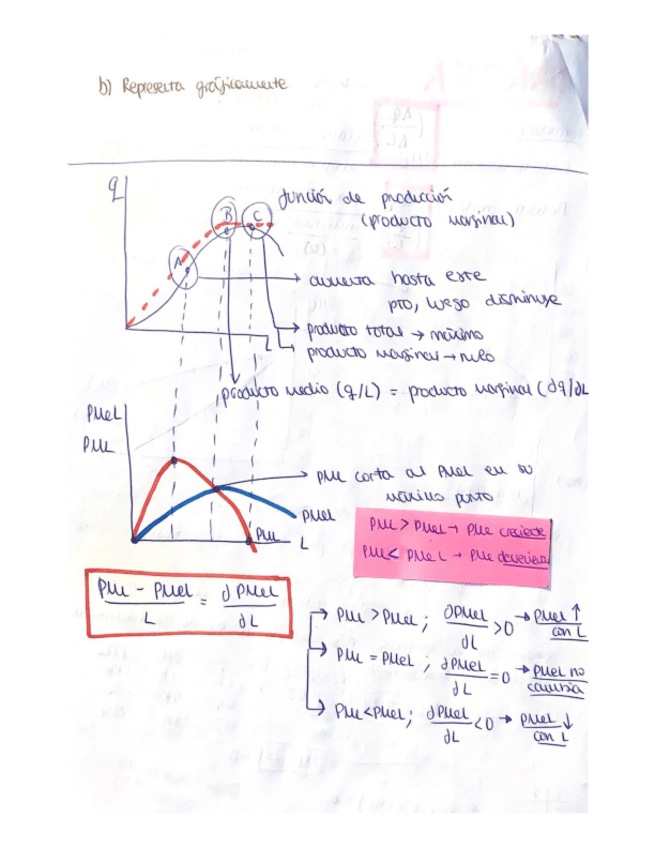 b) Representa gráficamente
q
B
C
A
función de producción
(producto marginal)
aumenta hasta este
pto, luego disminuye
producto total → máximo
L
producto marginal → nulo
producto medio (q/L) = producto marginal (∂q/∂L
PMeL
PML
PML corta al PMeL en su
máximo punto
PMeL
PML
L
PML > PMeL → PMe creciente
PML < PMeL → PMe decreciente
PML - PMeL / L = ∂PMeL / ∂L
PML > PMeL ; ∂PMeL / ∂L > 0 → PMeL ↑ con L
PML = PMeL ; ∂PMeL / ∂L = 0 → PMeL no cambia
PML < PMeL ; ∂PMeL / ∂L < 0 → PMeL ↓ con L